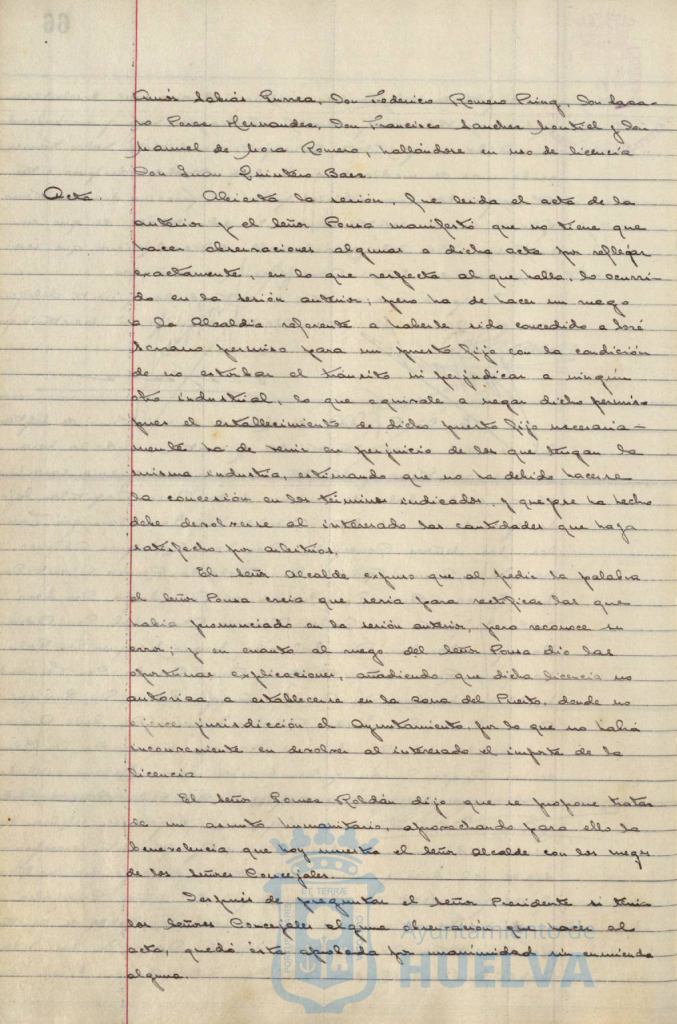 Amós Sabrás Gurrea, Don Federico Romero Pring, Don
Perez Hernandez, Don Francisco Sanchez Montiel y Don
Manuel de Mora Romero, hallándose en uso de licencia
Don Juan Quintero Baez
Acta. Abierta la sesión, fue leida el acta de la
anterior y el Señor Ponsa manifestó que no tiene que
hacer observaciones algunas a dicha acta por reflejar
exactamente, en lo que respecta al que habla, lo ocurri-
do en la sesión anterior; pero ha de hacer un ruego
a la Alcaldia referente a haberle sido concedido a José
Serrano permiso para un puesto fijo con la condición
de no estorbar el tránsito ni perjudicar a ningún
otro industrial, lo que equivale a negar dicho permiso
pues el establecimiento de dicho puesto fijo necesaria-
mente ha de venir en perjuicio de los que tengan la
misma industria, estimando que no ha debido hacerse
la concesión en los términos indicados, y que pese ha hecho
debe devolverse al interesado las cantidades que haya
satisfecho por arbitrios.
El Señor Alcalde expuso que al pedir la palabra
el Señor Ponsa creia que seria para rectificar las que
habia pronunciado en la sesión anterior, pero reconoce su
error; y en cuanto al ruego del Señor Ponsa dio las
oportunas explicaciones, añadiendo que dicha licencia no
autoriza a establecerse en la zona del Puerto, donde no
ejerce jurisdicción el Ayuntamiento, por lo que no habrá
inconveniente en devolver al interesado el importe de la
licencia.
El Señor Gomez Roldán dijo que se propone tratar
de un asunto humanitario, aprovechando para ello la
benevolencia que hoy muestra el Señor Alcalde con los ruegos
de los Señores Concejales.
Después de preguntar el Señor Presidente si tenian
los Señores Concejales alguna observación que hacer al
acta, quedó ésta aprobada por unanimidad sin enmienda
alguna.
Ayuntamiento de
HUELVA